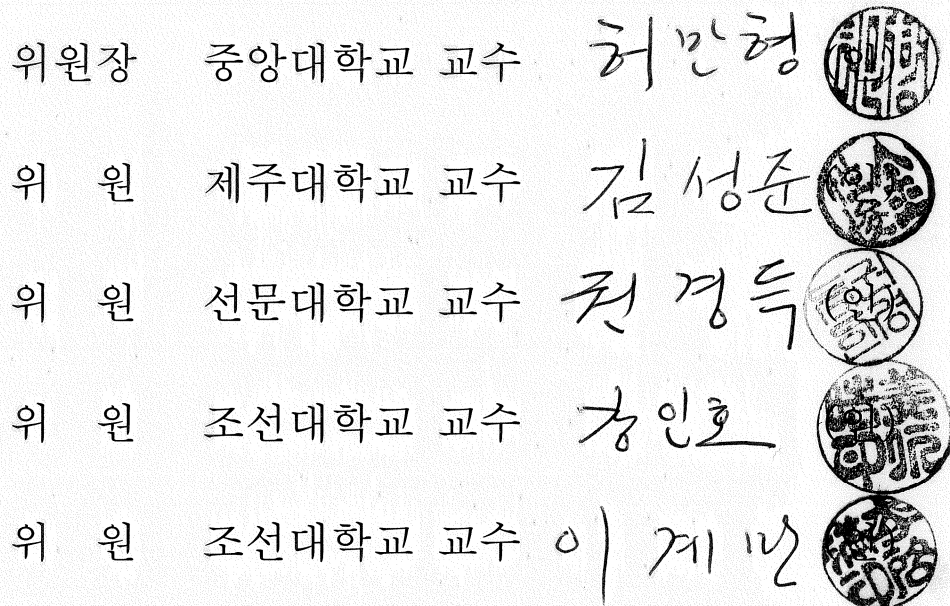 위원장 중앙대학교 교수 허만형
위 원 제주대학교 교수 김성준
위 원 선문대학교 교수 권경득
위 원 조선대학교 교수 강인호
위 원 조선대학교 교수 이계만